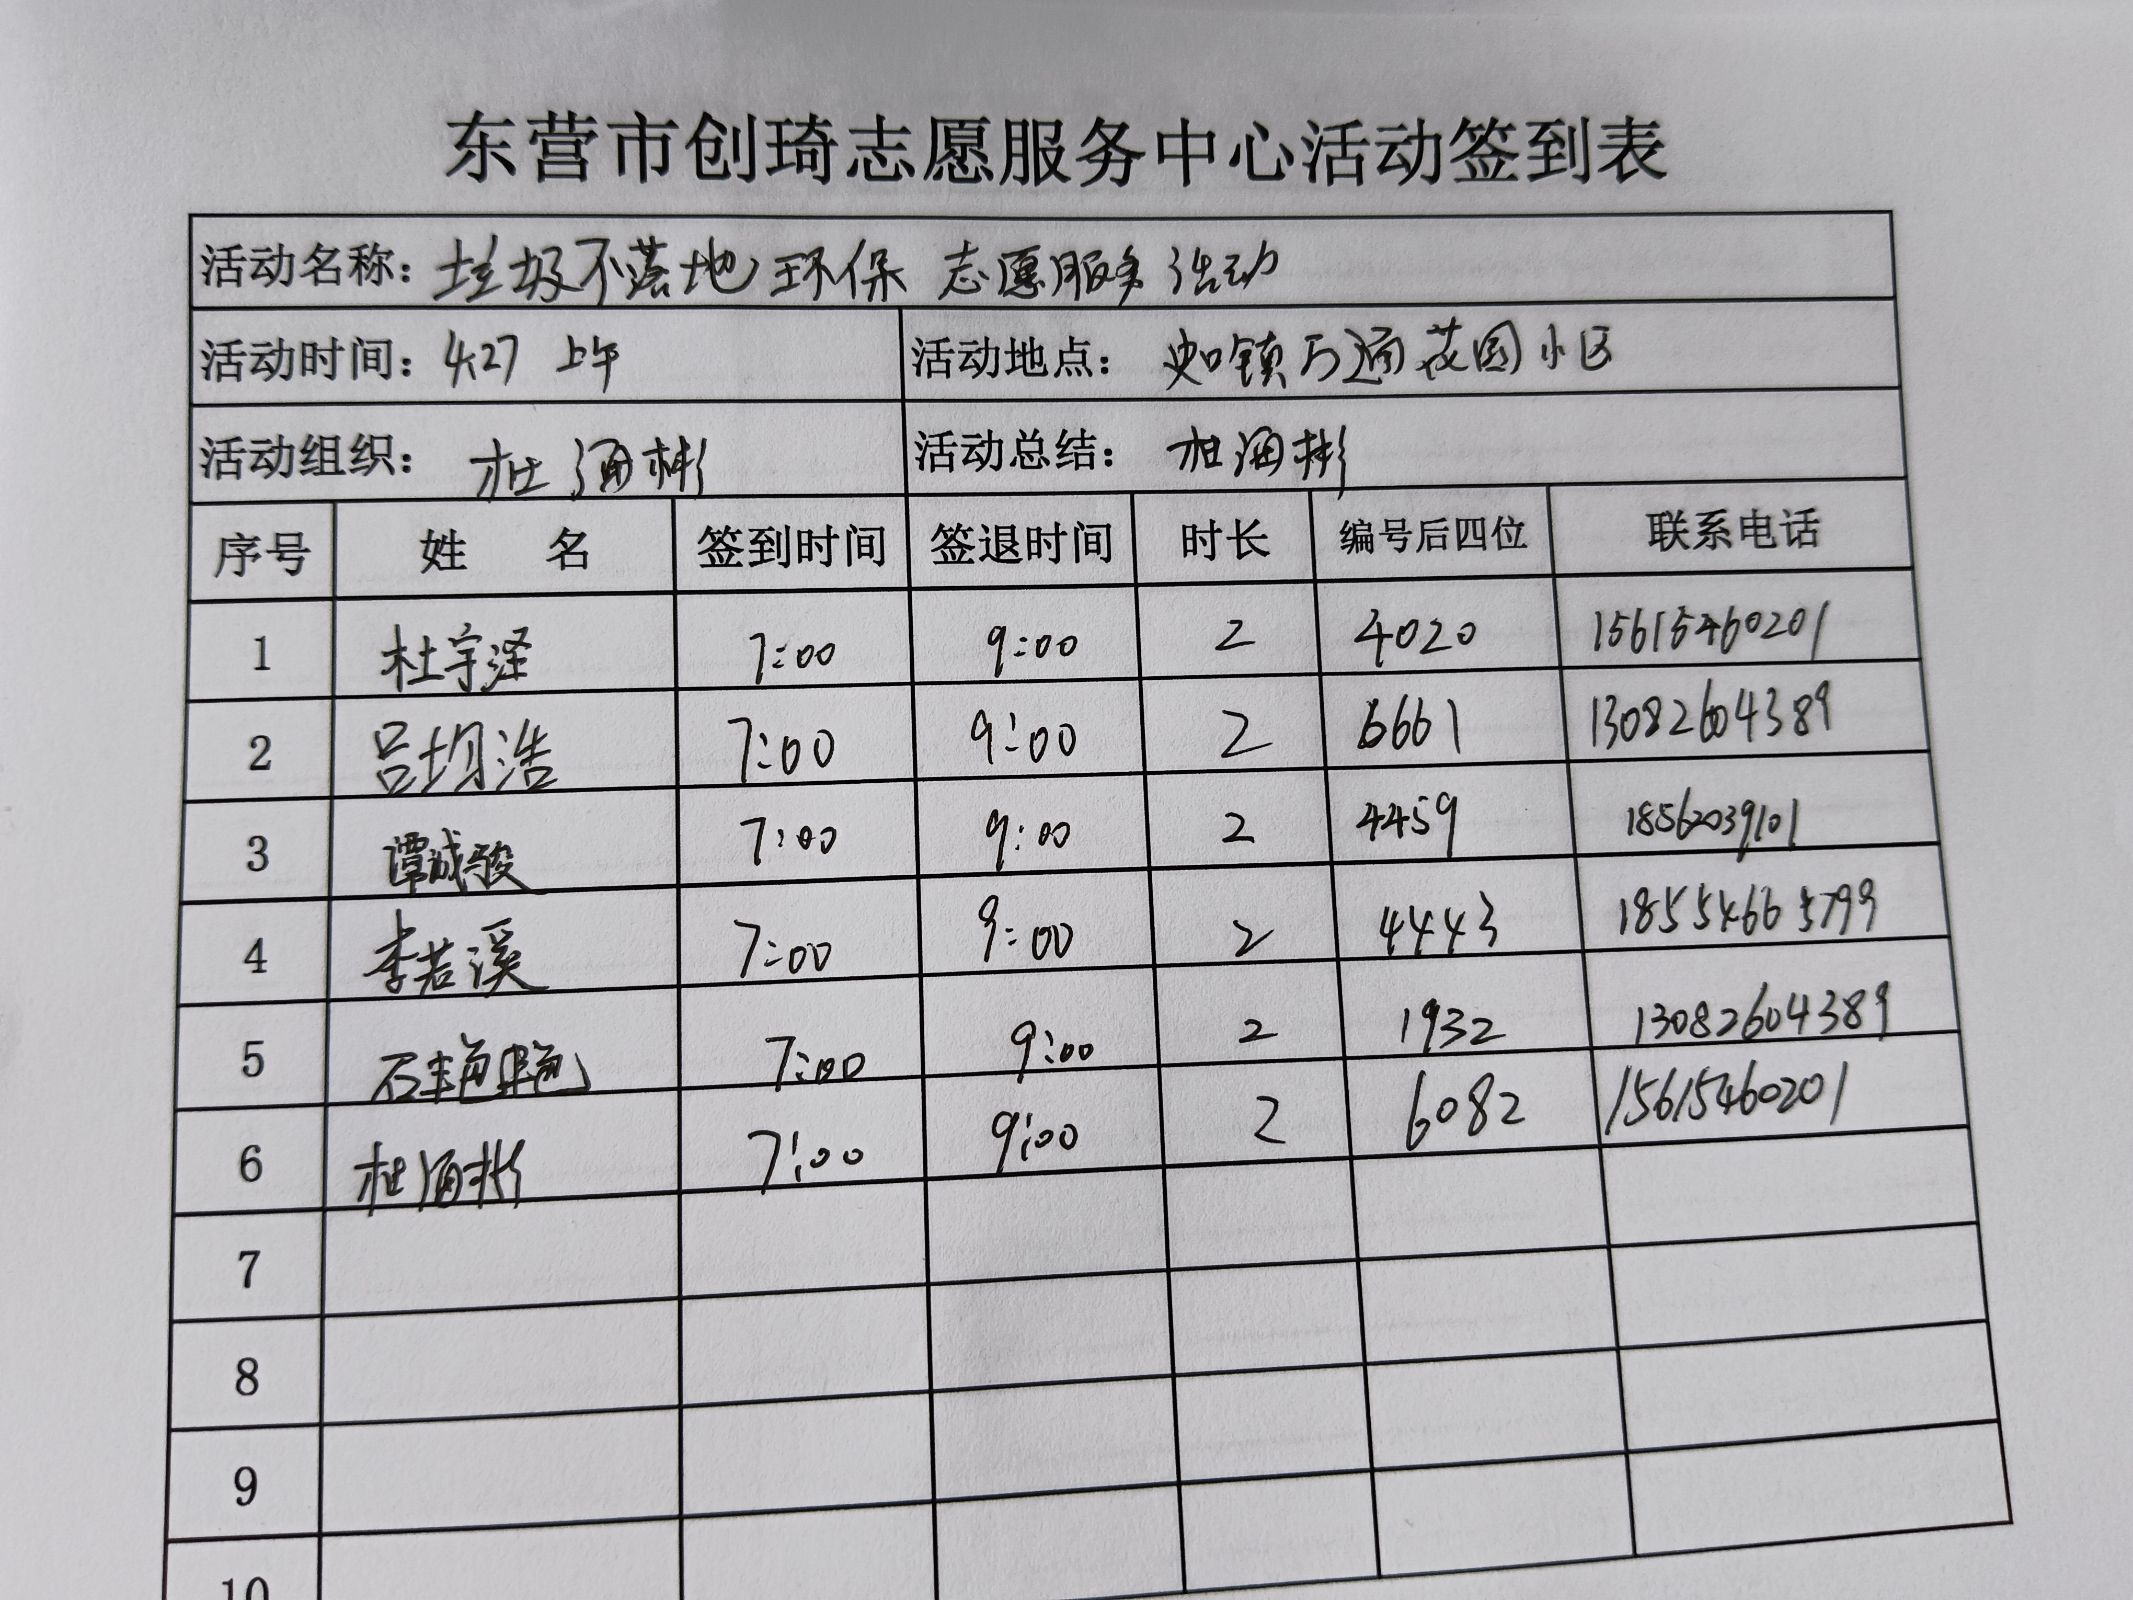 东营市创琦志愿服务中心活动签到表
活动名称：垃圾不落地 环保 志愿服务活动
活动时间：4.27 上午 活动地点：史口镇万通花园小区
活动组织：杜涌彬 活动总结：杜涌彬
序号 姓 名 签到时间 签退时间 时长 编号后四位 联系电话
1 杜宇泽 7:00 9:00 2 4020 15615460201
2 吕均浩 7:00 9:00 2 6661 13082604389
3 谭诚骏 7:00 9:00 2 4459 18562039101
4 李若溪 7:00 9:00 2 4443 18554665799
5 石艳艳 7:00 9:00 2 1932 13082604389
6 杜涌彬 7:00 9:00 2 6082 15615460201
7
8
9
10